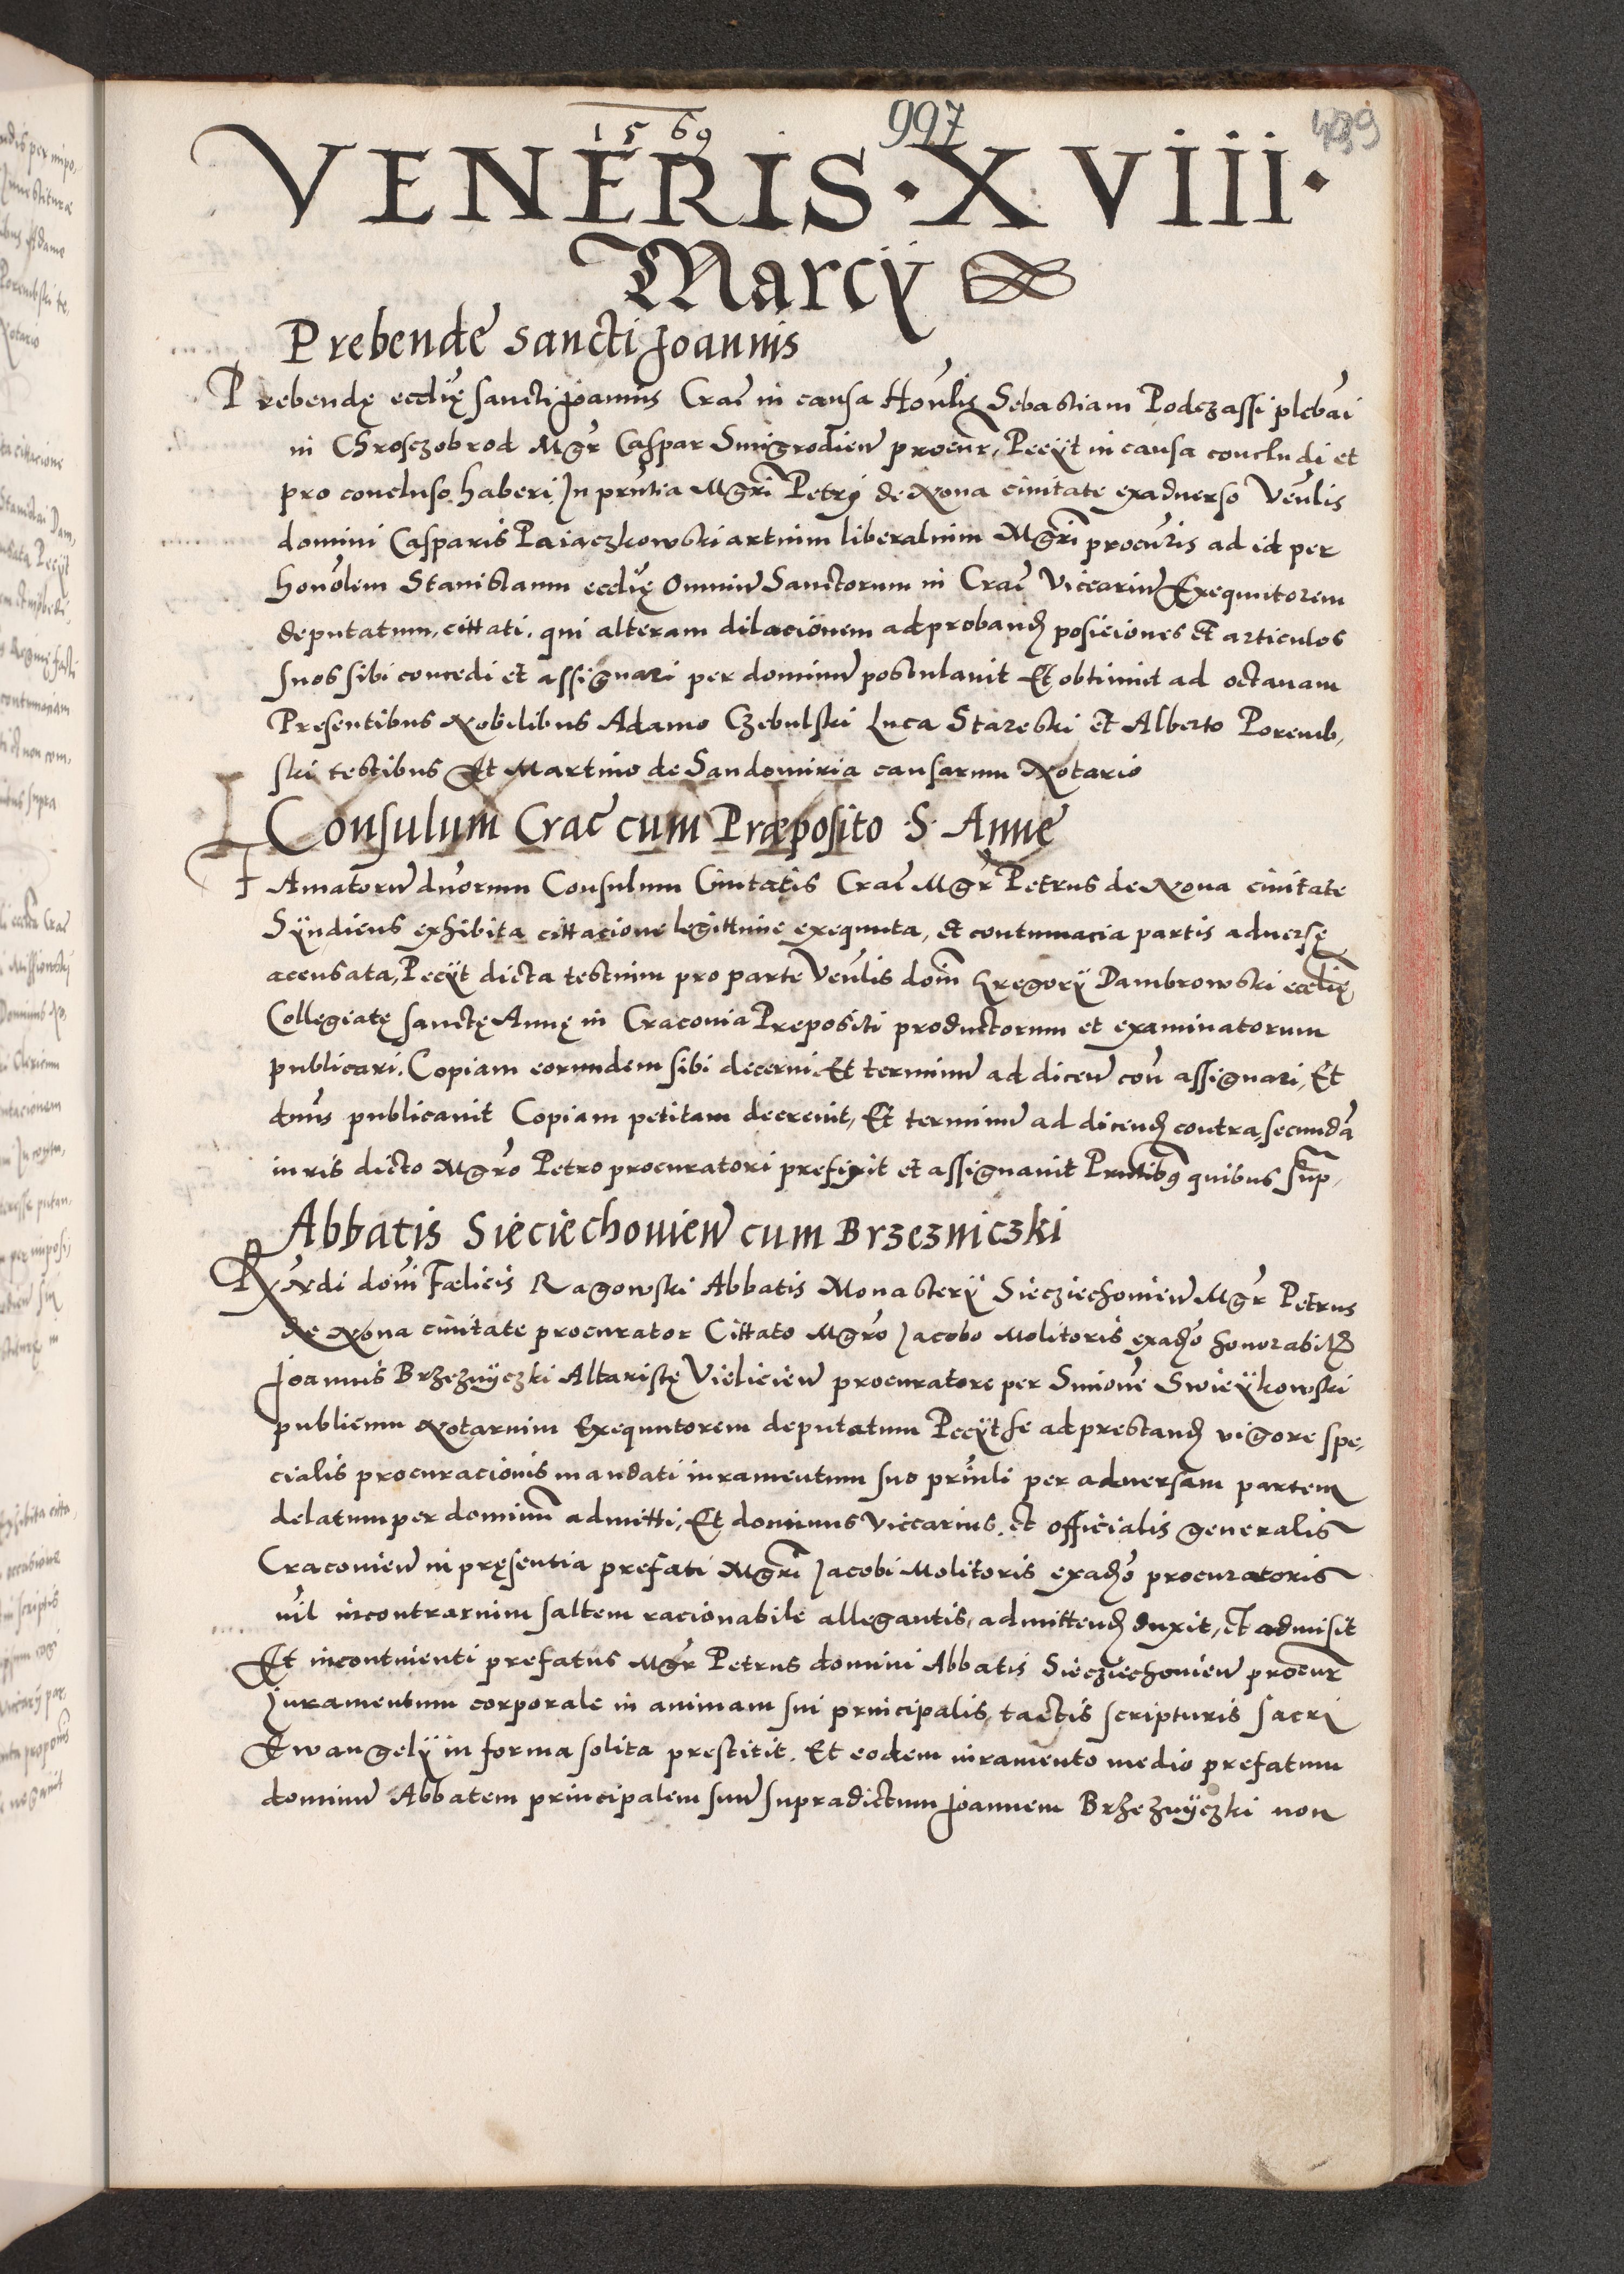 1569
997
499
VENERIS · XVIII ·
Marcÿ
Prebende Sancti Joannis
Prebendę eccliȩ sancti Joannis Crac̄ in causa Hon̄lis Sebastiani Podczassi plebāi
in Chrosczobrod Mgr̄ Caspar Smigrodien̄ procur̄, Pecÿt in causa concludi et
pro concluso haberi, In prn̄tia Mgri Petri de Nova civitate exadverso Ven̄lis
domini Casparis Paiaczkowski artium liberalium Mgri procur̄is ad id per
honōlem Stanislaum eccliȩ Omniū Sanctorum in Crac̄ Viccariū Exequutorem
deputatum, cittati, qui alteram dilacionem ad proband posiciones et articulos
suos sibi concedi et assignari per dominū postulavit Et obtinuit ad octavam
Presentibus Nobilibus Adamo Czebulski Luca Stareski et Alberto Poremb,
ski testibus Et Martino de Sandomiria causarum Notario
Consulum Crac̄ cum Præposito S. Anne
Famatorū dn̄orum Consulum Civitatis Crac̄ Mgr̄ Petrus de Nova civitate
Sÿndicus exhibita cittacione legittime exequuta, et contumacia partis adversę
acensata, Pecÿt dicta testium pro parte Ven̄lis dom̄ Gregorÿ Dambrowski eccliȩ
Collegiatę sanctę Annę in Cracovia Prepositi productorum et examinatorum
publicari, Copiam eorundem sibi decerni Et terminū ad dicen̄ con̄ assignari, Et
dn̄us publicavit Copiam petitam decrevit, Et terminū ad dicend contra, secundā
iuris dicto Mgr̄o Petro procuratori prefixit et assignavit Prn̄tibꝫ quibus sup̄,
Abbatis Sieciechovien̄ cum Brzezniczki
Rn̄di dom̄ Fælicis Ragowski Abbatis Monasterÿ Siecziechovien̄ Mgr̄ Petrus
de Nova civitate procurator Cittato Mgr̄o Jacobo Molitoris exadꝫo honorabilꝫ
Joannis Brzeznÿczki Altaristę Vielicien̄ procuratore per Simonē Swieÿkowski
publicum Notarium Exequutorem deputatum Pecÿt se ad prestand vigore spe,
cialis procuracionis mandati iuramentum suo prīnli per adversam partem
delatum per dominū admitti, Et dominus Viccarius et officialis generalis
Cracovien̄ in pręsentia prefati Mgri Jacobi Molitoris exadꝫo procuratoris
nil in contrarium saltem racionabile allegantis, admittend duxit, et admisit
Et incontinenti prefatus Mgr̄ Petrus domini Abbatis Siecziechovien̄ procur̄
Juramentum corporale in animam sui principalis, tactis scripturis sacri
Ewangelÿ in forma solita prestitit. Et eodem iuramento medio prefatum
dominū Abbatem principalem suū supradictum Joannem Brzeznÿczki non